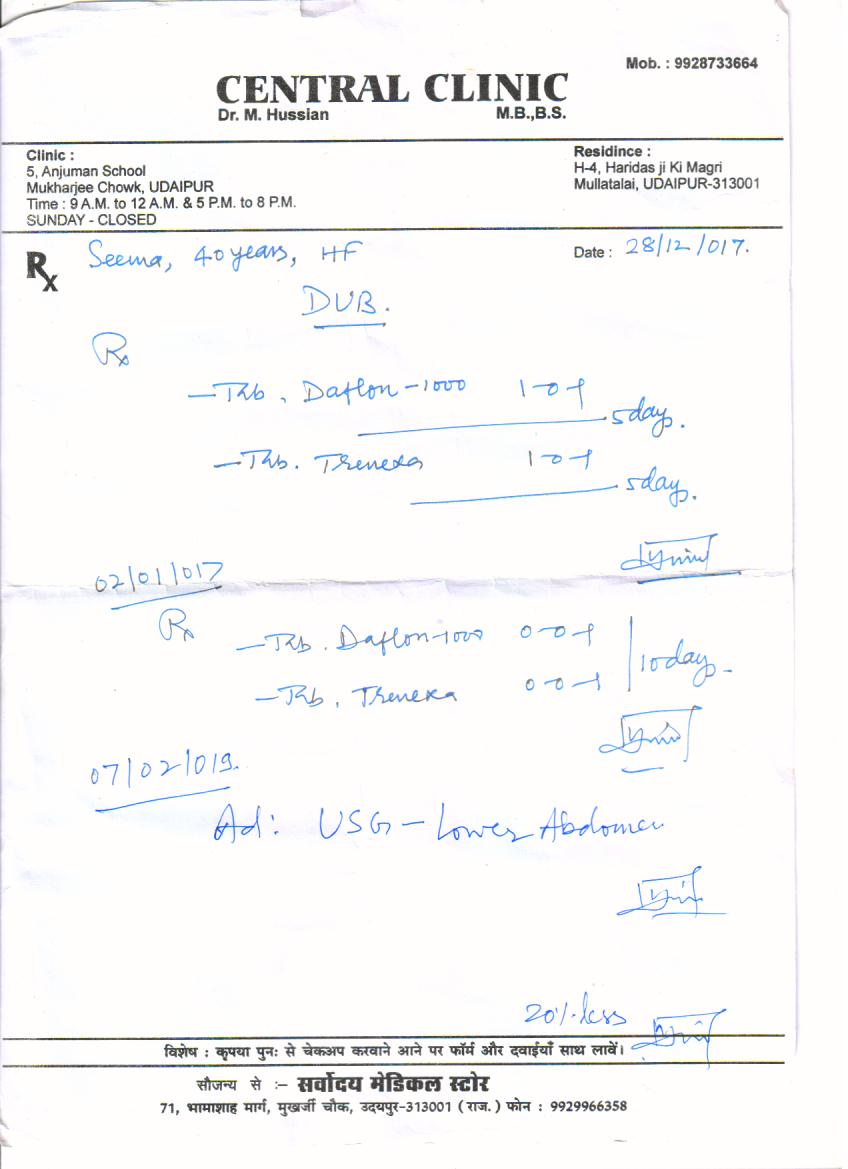 Mob. : 9928733664
CENTRAL CLINIC
Dr. M. Hussian M.B.,B.S.
Clinic :
5, Anjuman School
Mukharjee Chowk, UDAIPUR
Time : 9 A.M. to 12 A.M. & 5 P.M. to 8 P.M.
SUNDAY - CLOSED
Residince :
H-4, Haridas ji Ki Magri
Mullatalai, UDAIPUR-313001
Rx Seema, 40 years, HF Date : 28/12/017.
DUB.
Rx
- Tab. Daflon-1000 1-0-1
5day.
- Tab. Trenexa 1-0-1
5day.
02/01/017
Rx
- Tab. Daflon-1000 0-0-1
10day -
- Tab. Trenexa 0-0-1
07/02/019.
Ad: USG - Lower Abdomen
20% less
विशेष : कृपया पुनः से चेकअप करवाने आने पर फॉर्म और दवाईयाँ साथ लावें।
सौजन्य से :- सर्वोदय मेडिकल स्टोर
71, भामाशाह मार्ग, मुखर्जी चौक, उदयपुर-313001 (राज.) फोन : 9929966358